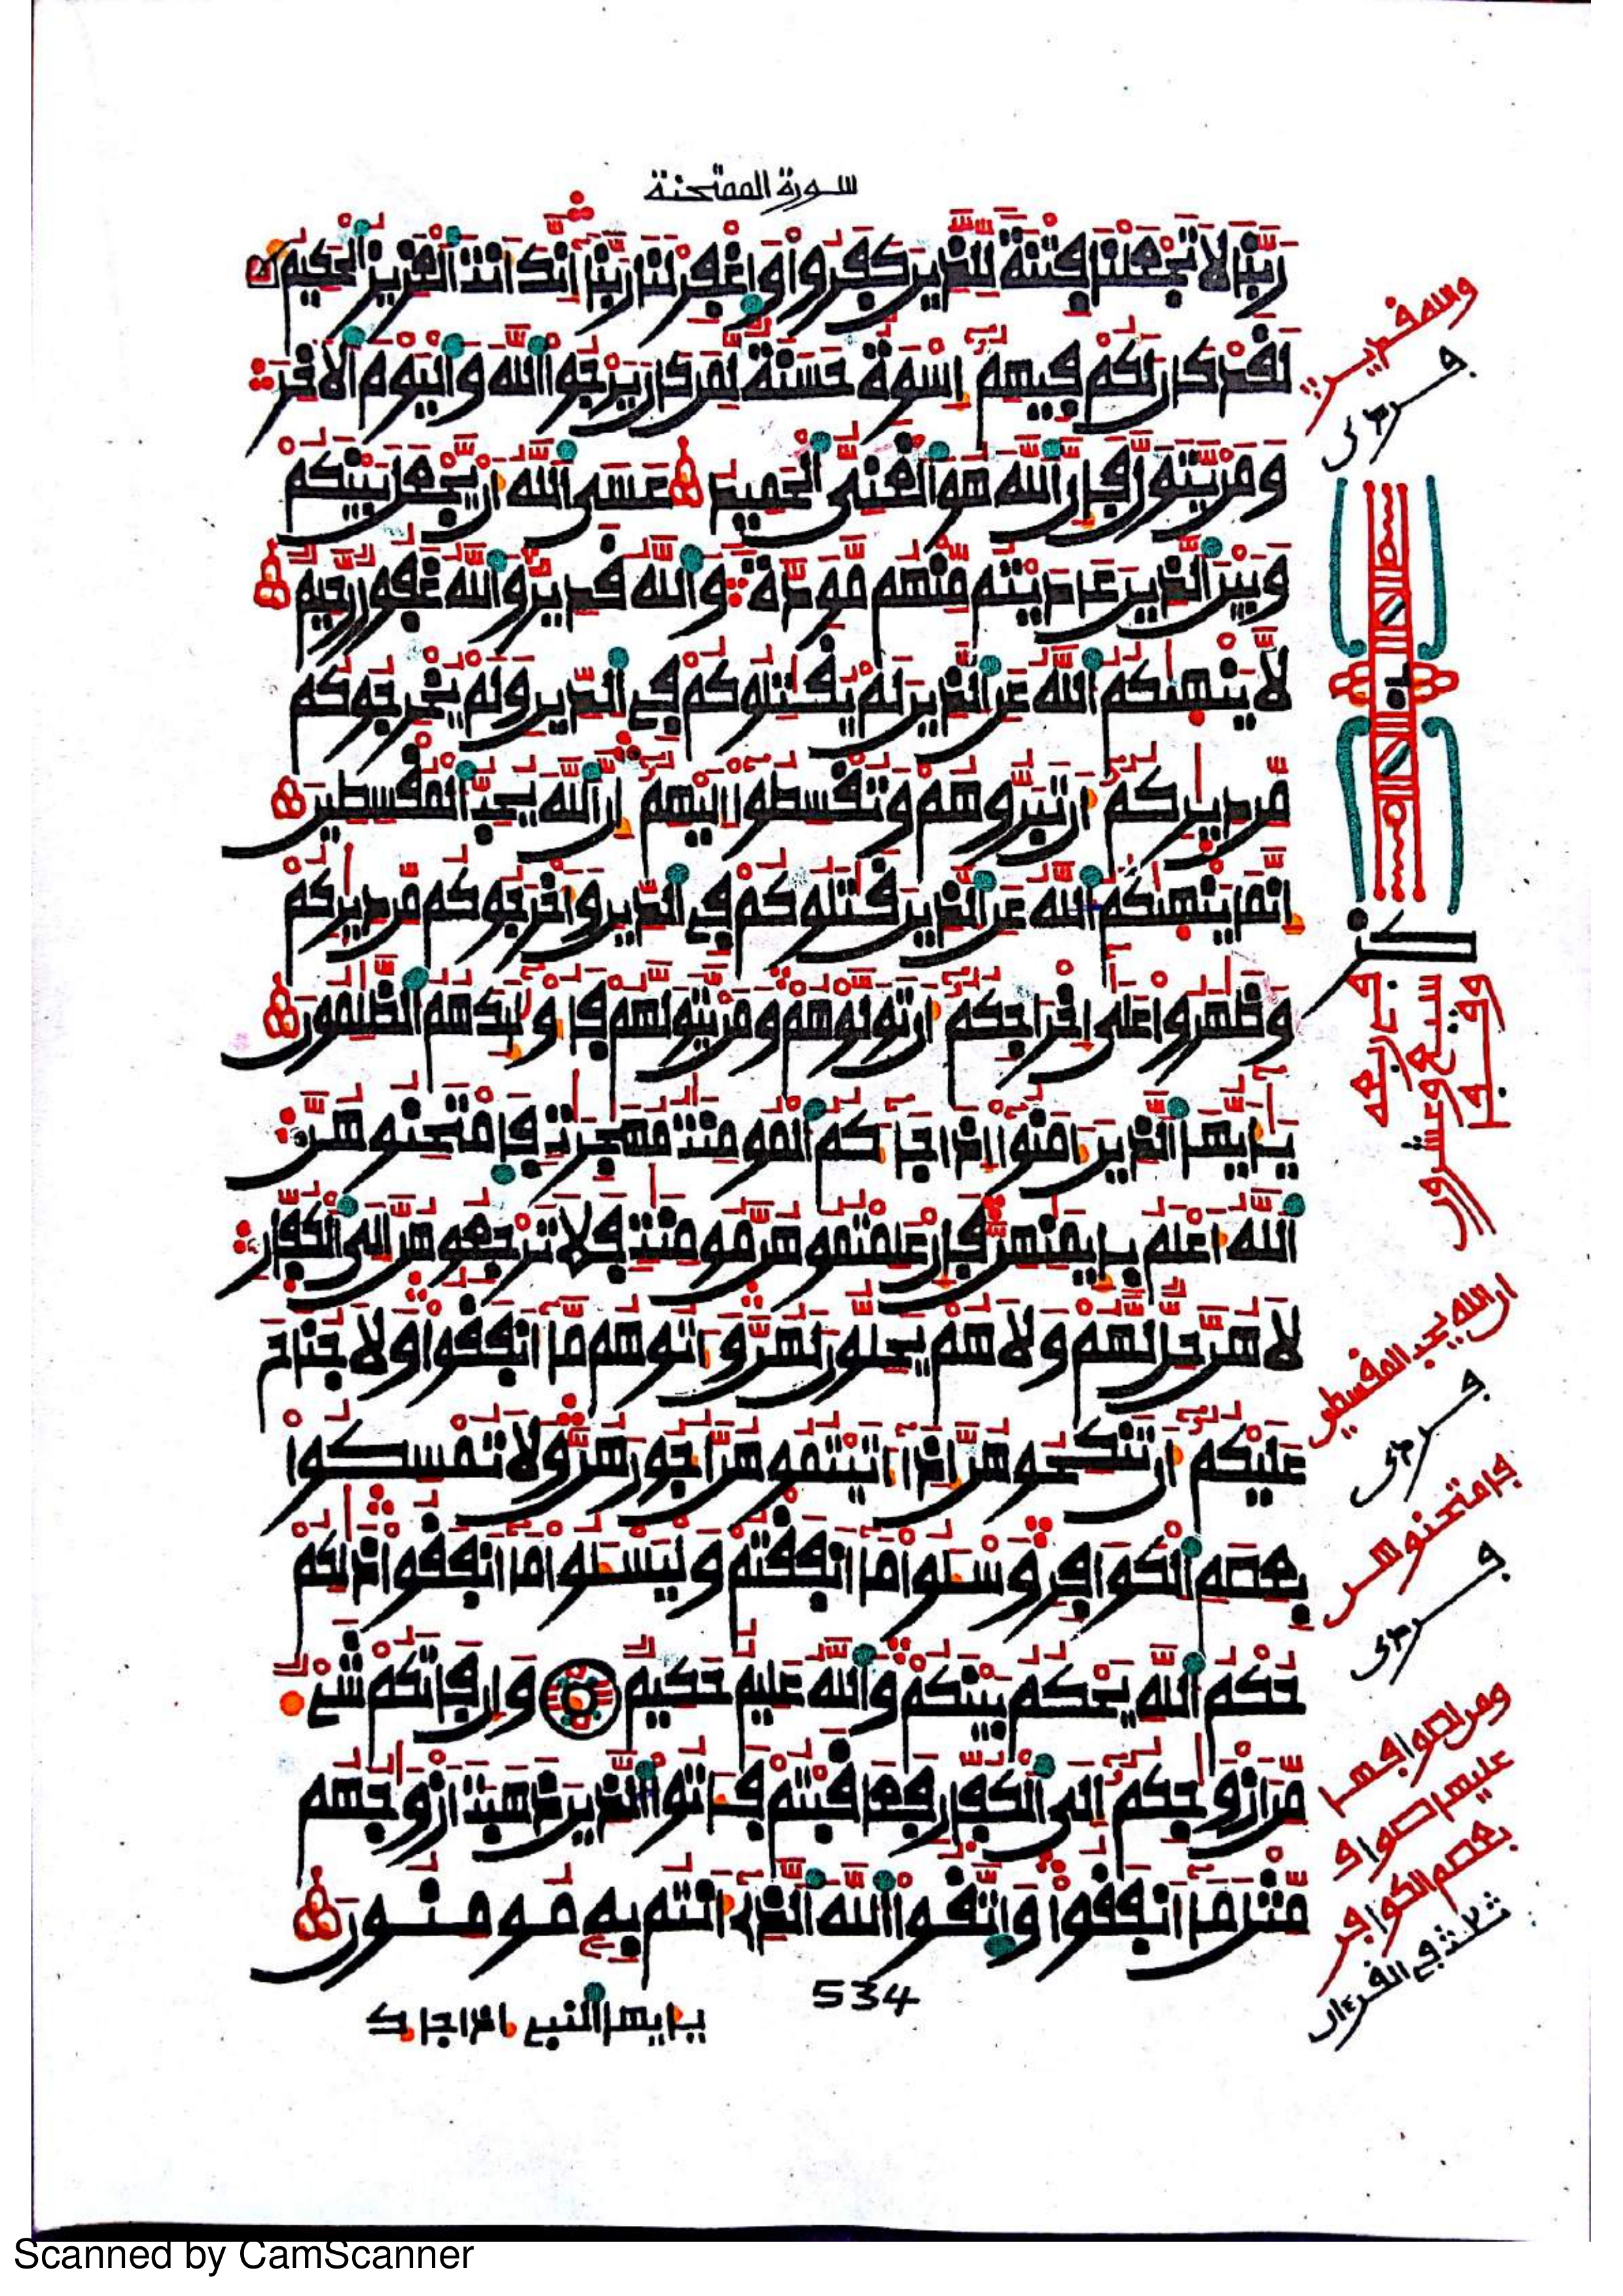 سورة الممتحنة
ربنا لا تجعلنا فتنة للذين كفروا واغفر لنا ربنا إنك انت العزيز الحكيم
لقد كان لكم فيهم إسوة حسنة لمن كان يرجوا الله واليوم الاخر
ومن يتول فإن الله هو الغني الحميد عسى الله أن يجعل بينكم
وبين الذين عاديتم منهم مودة والله قدير والله غفور رحيم
لا ينهيكم الله عن الذين لم يقتلوكم في الدين ولم يخرجوكم
من ديركم أن تبروهم وتقسطوا إليهم إن الله يحب المقسطين
إنما ينهيكم الله عن الذين قتلوكم في الدين وأخرجوكم من ديركم
وظهروا على إخراجكم أن تولوهم ومن يتولهم فأوليك هم الظلمون
يأيها الذين ءامنوا إذا جاكم المومنت مهجرت فامتحنوهن
الله أعلم بإيمنهن فإن علمتموهن مومنت فلا ترجعوهن إلى الكفار
لا هن حل لهم ولا هم يحلون لهن وءاتوهم ما أنفقوا ولا جناح
عليكم أن تنكحوهن إذا ءاتيتموهن أجورهن ولا تمسكوا
بعصم الكوافر وسئلوا ما أنفقتم وليسئلوا ما أنفقوا ذلكم
حكم الله يحكم بينكم والله عليم حكيم وإن فاتكم شيء
من أزوجكم إلى الكفار فعاقبتم فئاتوا الذين ذهبت أزوجهم
مثل ما أنفقوا واتقوا الله الذي أنتم به مومنون
534
يأيها النبي إذا جاك
والله قدير
نصف
إن الله يحب المقسطين
فامتحنوهن
بعصم الكوافر
ثلاثة في القرءان
Scanned by CamScanner